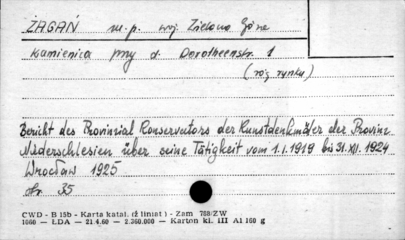 ŻAGAŃ m.p. woj. Zielona Góra
kamienica przy d. Dorotheenstr. 1
(róg rynku)
Bericht des Provinzial Konservators der Kunstdenkmäler der Provinz
Niderschlesien über seine Tätigkeit vom 1.I.1919 bis 31.XII.1924
Wrocław 1925
str. 35
CWD - B 15b - Karta katal. (ż liniat) - Zam 788/ZW
1060 - ŁDA - 21.4.60 - 2.260.000 - Karton kl. III A1 160 g